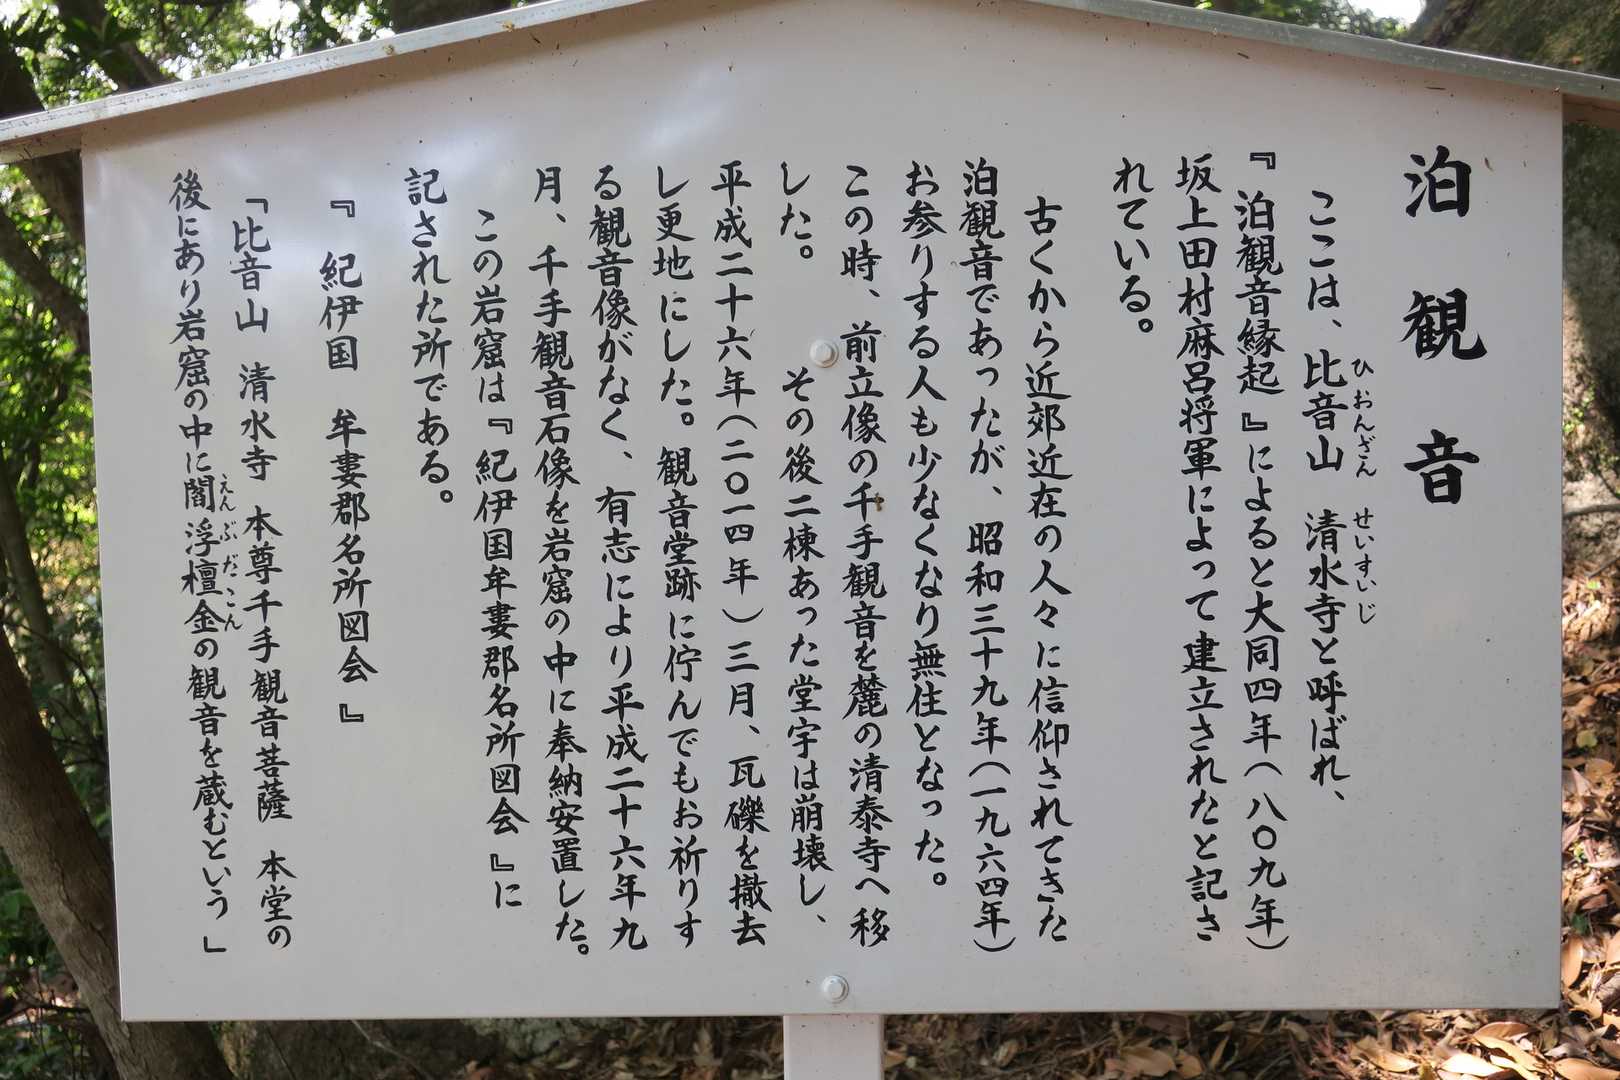 泊観音
ここは、比音山 清水寺と呼ばれ、
ひおんざん せいすいじ
『泊観音縁起』によると大同四年(八〇九年)
坂上田村麻呂将軍によって建立されたと記さ
れている。
古くから近郊近在の人々に信仰されてきた
泊観音であったが、昭和三十九年(一九六四年)
お参りする人も少なくなり無住となった。
この時、前立像の千手観音を麓の清泰寺へ移
した。 その後二棟あった堂宇は崩壊し、
平成二十六年(二〇一四年)三月、瓦礫を撤去
し更地にした。観音堂跡に佇んでもお祈りす
る観音像がなく、有志により平成二十六年九
月、千手観音石像を岩窟の中に奉納安置した。
この岩窟は『紀伊国牟婁郡名所図会』に
記された所である。
『紀伊国 牟婁郡名所図会』
「比音山 清水寺 本尊千手観音菩薩 本堂の
後にあり岩窟の中に閻浮檀金の観音を蔵むという」
えんぶだこん